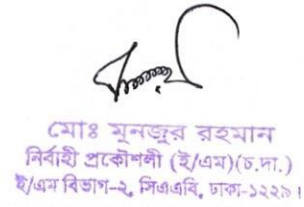 মোঃ মুনজুর রহমান
নির্বাহী প্রকৌশলী (ই/এম)(চ.দা.)
ই/এম বিভাগ-২, সিএএবি, ঢাকা-১২২৯।